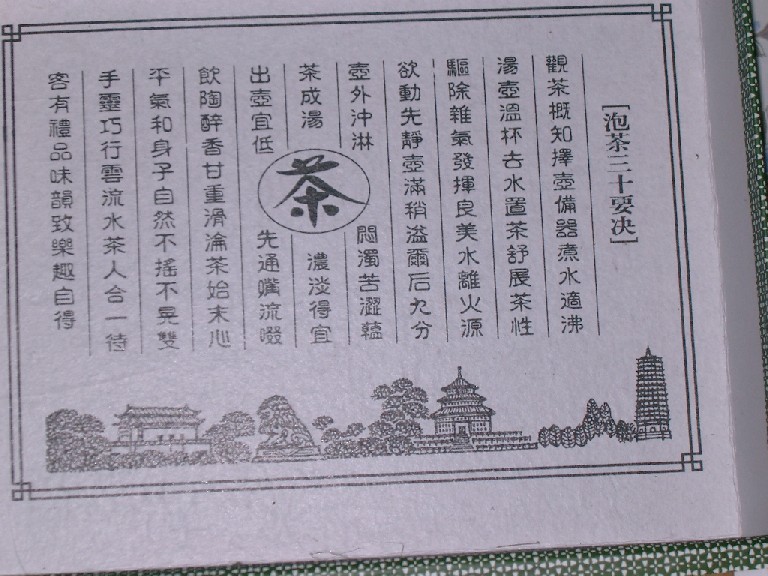 [泡茶三十要决]
觀茶概知擇壺備器煮水適沸
湯壺溫杯去水置茶舒展茶性
驅除雜氣發揮良美水離火源
欲動先靜壺滿稍溢爾后九分
壺外沖淋 悶濁苦澀韞
茶成湯 濃淡得宜
出壺宜低 先通嘴流啜
飲陶醉香甘重滑淪茶始末心
平氣和身子自然不搖不晃雙
手靈巧行雲流水茶人合一待
客有禮品味韻致樂趣自得
茶